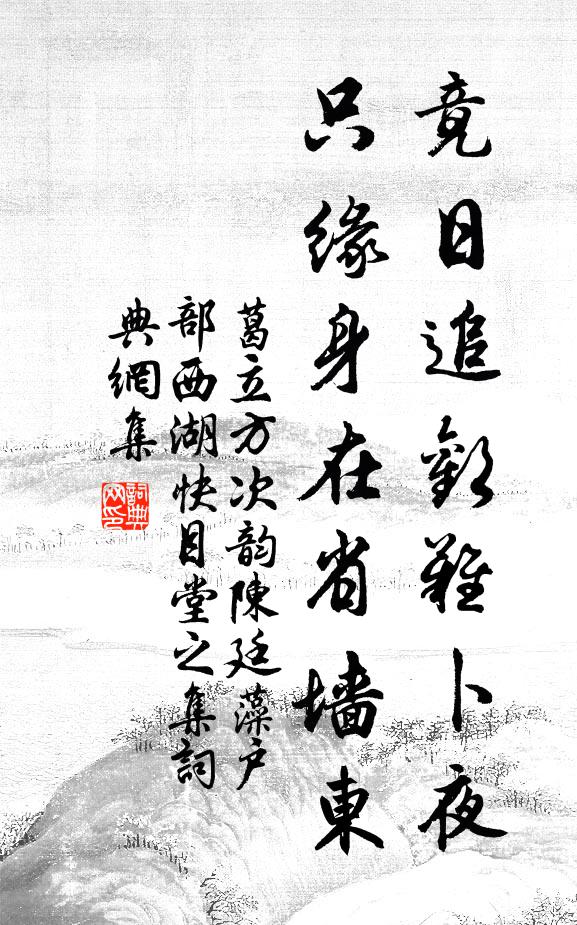 竟日追歡難卜夜
只緣身在省墙東
葛立方次韵陳廷藻户
部西湖快目堂之集詞
典網集
詞典
网印